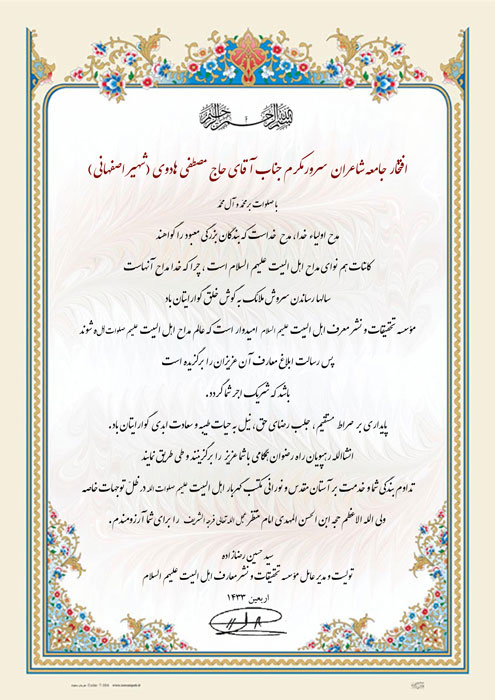 بسم الله الرحمن الرحیم
افتخار جامعه شاعران سرور مکرم جناب آقای حاج مصطفی هادوی (شهیر اصفهانی)
با صلوات بر محمد و آل محمد
مدح اولیاء خدا، مدح خداست که بندگان بزرگی معبود را گواهند
کائنات هم نوای مداح اهل البیت علیهم السلام است ، چرا که خدا مداح آنهاست
سالها رساندن سروش ملائک به گوش خلق گوارایتان باد
مؤسسه تحقیقات و نشر معارف اهل البیت علیهم السلام امیدوار است که عالم مداح اهل البیت علیهم صلوات الله شوند
پس رسالت ابلاغ معارف آن عزیزان را برگزیده است
باشد که شریک اجر شما گردد.
پایداری بر صراط مستقیم ، جلب رضای حق، نیل به حیات طیبه و سعادت ابدی گوارایتان باد.
انشاالله رهپویان راه رضوان همگامی با شما عزیز را برگزینند و طی طریق نمایند
تداوم بندگی شما و خدمت بر آستان مقدس و نورانی مکتب گهربار اهل البیت علیهم صلوات الله در ظل توجهات خاصه
ولی الله الاعظم حجة ابن الحسن المهدی امام منتظر عجل الله تعالی فرجه الشریف را برای شما آرزومندم.
سید حسین رضازاده
تولیت و مدیر عامل مؤسسه تحقیقات و نشر معارف اهل البیت علیهم السلام
اربعین ۱۴۳۳